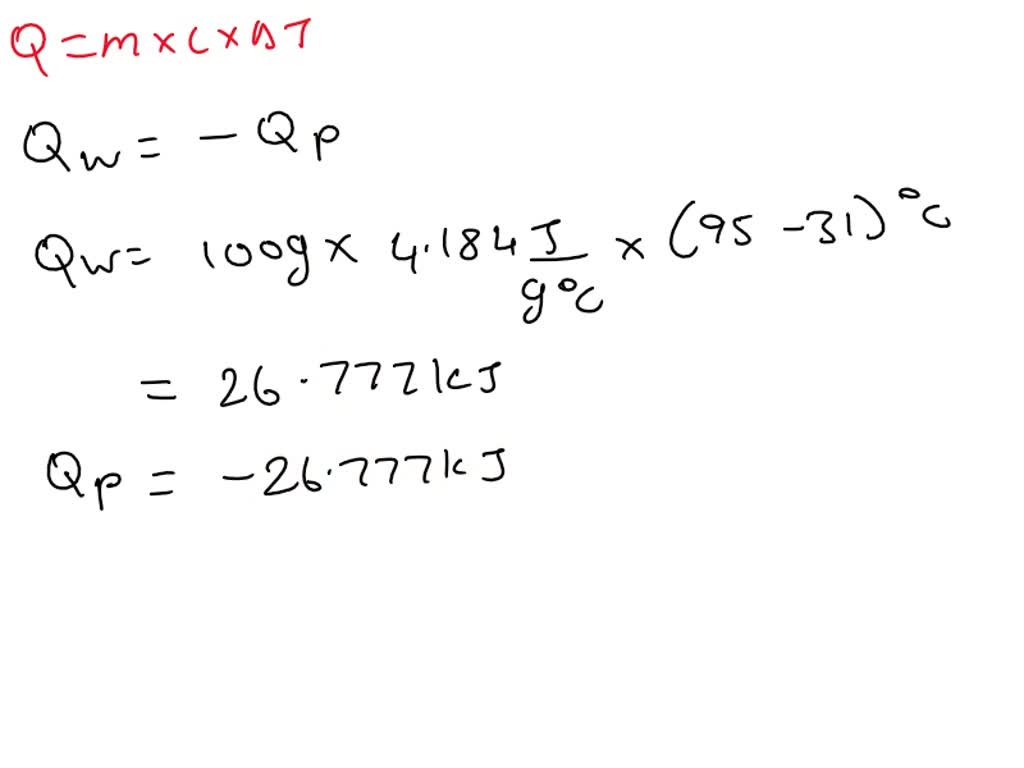 Q = m × c × ΔT
Qw = - Qp
Qw = 100g × 4.184 J/g°C × (95 - 31) °C
= 26.777 kJ
Qp = -26.777 kJ